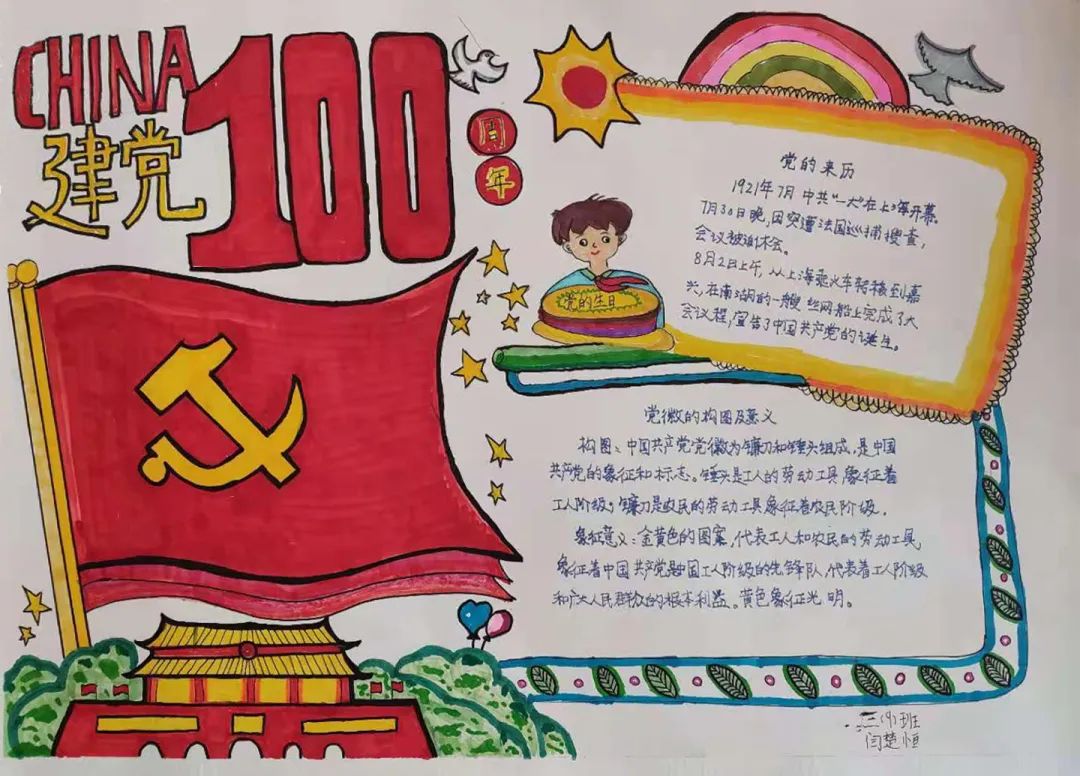 CHINA
建党
100
周
年
党的生日
党的来历
1921年7月中共“一大”在上海开幕。
7月30日晚,因突遭法国巡捕搜查,
会议被迫休会。
8月2日上午,从上海乘火车转移到嘉
兴,在南湖的一艘丝网船上完成了大
会议程,宣告了中国共产党的诞生。
党徽的构图及意义
构图:中国共产党党徽为镰刀和锤头组成,是中国
共产党的象征和标志。锤头是工人的劳动工具象征着
工人阶级;镰刀是农民的劳动工具象征着农民阶级。
象征意义:金黄色的图案,代表工人和农民的劳动工具,
象征着中国共产党是中国工人阶级的先锋队,代表着工人阶级
和广大人民群众的根本利益。黄色象征光明。
三(9)班
闫楚恒